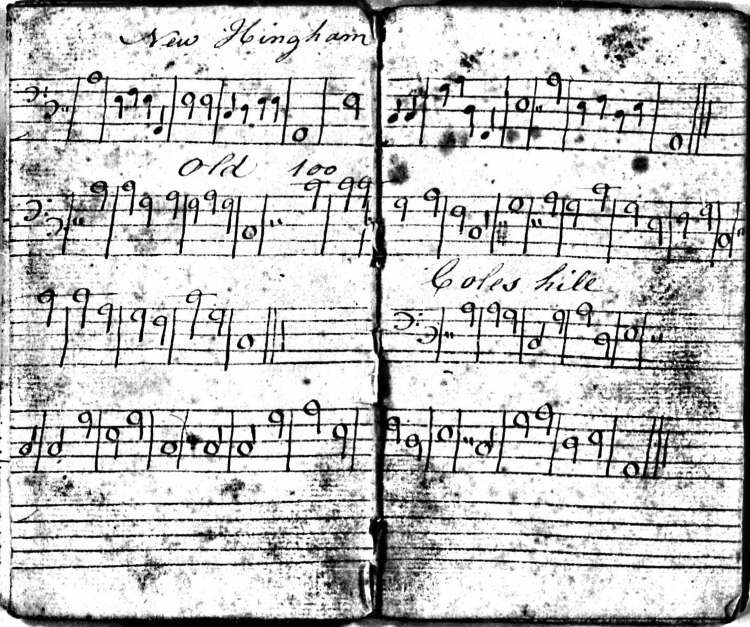 New Hingham
Old 100
Coles hill